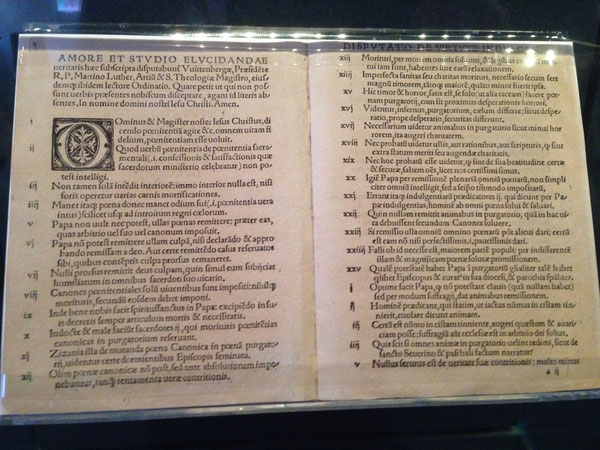 AMORE ET STVDIO ELVCIDANDAE
ueritatis hæc subscripta disputabunť Vuittenbergæ, Præsidẽte
R. P. Martino Luther, Artiũ & S. Theologiæ Magistro, eius-
demq; ibidem lectore Ordinatio. Quare petit ut qui non pos-
sunt uerbis præsentes nobiscum disceptare, agant id literis ab-
sentes. In nomine domini nostri Iesu Christi. Amen.
i DOminus & Magister noster Iesus Christus, di-
cendo pœnitentiã agite &c, omnem uitam fi-
delium, pœnitentiam esse uoluit.
ij Quod uerbũ pœnitentia de pœnitentia sacra-
mentali(.i. confessionis & satisfactionis quæ
sacerdotum ministerio celebratur) non po-
test intelligi.
iij Non tamen solã intẽdit interiorẽ; immo interior nulla est, nisi
foris operetur uarias carnis mortificationes.
iiij Manet itaq; pœna donec manet odium sui (.i. pœnitentia uera
intus) scilicet usq; ad introitum regni cælorum.
v Papa non uult nec potest, ullas pœnas remittere; præter eas,
quas arbitrio uel suo uel canonum imposuit.
vj Papa nõ potest remittere ullam culpã, nisi declarãdo & appro
bando remissam a deo. Aut certe remittẽdo casus reseruatos
sibi, quibus contẽptis culpa prorsus remaneret.
vij Nulli prorsus remittit deus culpam, quin simul eum subijciat
humiliatum in omnibus sacerdoti suo uicario.
viij Canones pœnitentiales solũ uiuentibus sunt impositi; nihilq;
morituris, secundũ eosdem debet imponi.
ix Inde bene nobis facit spiritussanctus in Papa; excipiẽdo in su-
is decretis semper articulum mortis & necessitatis.
x Indocte & male faciũt sacerdotes ij, qui morituris pœnitẽtias
canonicas in purgatorium reseruant.
xj Zizania illa de mutanda pœna Canonica in pœnã purgato-
rij, uidentur certe dormientibus Episcopis seminata.
xij Olim pœnæ canonicæ nõ post, sed ante absolutionem impo
nebantur, tanq̃ tentamenta ueræ contritionis.
DISPVTATIO DE VIRTVTE INDVLGEN.
xiij Morituri, per mortem omnia soluunt, & legibus canonũ mor
tui iam sunt, habentes iure earũ relaxationem.
xiiij Imperfecta sanitas seu charitas morituri, necessario secum fert
magnũ timorem, tãtoq; maiorẽ, quãto minor fuerit ipsa.
xv Hic timor & horror, satis est, se solo (ut alia taceam) facere pœ-
nam purgatorij, cum sit proximus desperationis horrori.
xvj Videntur, infernus, purgatorium, cælum differre; sicut despe-
ratio, prope desperatio, securitas differunt.
xvij Necessarium uidetur animabus in purgatorio sicut minui hor
rorem, ita augeri charitatem.
xviij Nec probatũ uidetur ullis, aut rationibus, aut scripturis, q̃ sint
extra statum meriti seu augendæ charitatis.
xix Nec hoc probatũ esse uidetur, q̃ sint de sua beatitudine certæ
& securæ, saltem oẽs, licet nos certissimi simus.
xx Igiť Papa per remissionẽ plenariã omniũ pœnarũ, non simpli
citer omniũ intelligit, sed a seipso tm̃modo impositarũ.
xxj Errant itaq; indulgentiarũ prædicatores ij, qui dicunt per Pa-
pæ indulgentias, hominẽ ab omni pœna solui & saluari.
xxij Quin nullam remittit animabus in purgatorio, quã in hac ui-
ta debuissent secundum Canones soluere.
xxiij Si remissio ulla omniũ omnino pœnarũ põt alicui dari; certũ
est eam nõ nisi perfectissimis, i. paucissimis dari.
xxiiij Falli ob id necesse est, maiorem partẽ populi; per indifferentẽ
illam & magnificam pœnæ solutæ promissionem.
xxv Qualẽ potestatẽ habet Papa ĩ purgatoriũ gñaliter talẽ habet
quilibet Episcopus & curat9 in sua diœcesi, & parochia sp̃aliter.
j Optime facit Papa, q̃ nõ potestate clauis (quã nullam habet)
sed per modum suffragij, dat animabus remissionem.
ij Hominẽ prædicant, qui statim, ut iactus nũmus in cistam tin-
nierit, euolare dicunt animam.
iij Certũ est nũmo in cistam tinniente, augeri quæstum & auari-
ciam posse; suffragiũ aũt ecclesiæ est in arbitrio dei solius.
iiij Quis scit si omnes animæ in purgatorio uelint redimi, sicut de
sancto Seuerino & paschali factum narratur?
v Nullus securus est de ueritate suæ contritionis; multo minus
a ij